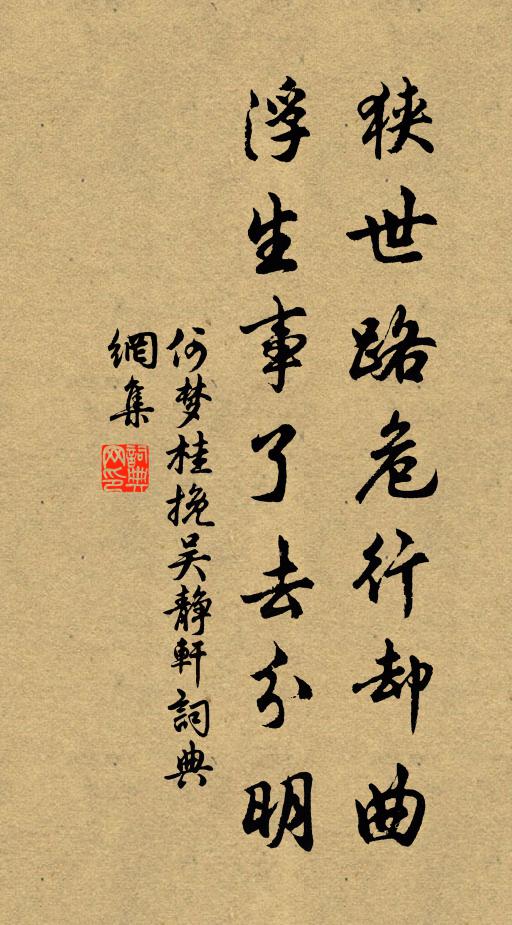 狭世路危行却曲
浮生事了去分明
何梦桂挽吴静軒詞典
網集
詞典网印